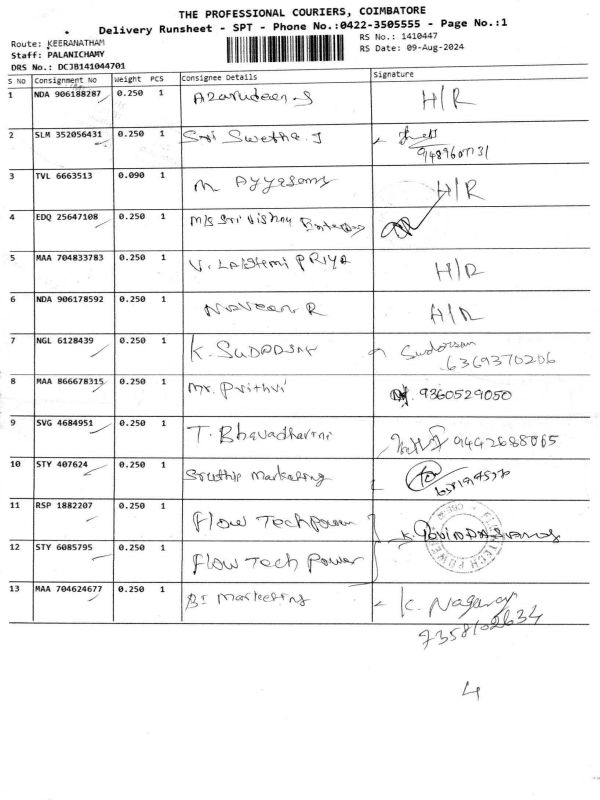 THE PROFESSIONAL COURIERS, COIMBATORE
Delivery Runsheet - SPT - Phone No.:0422-3505555 - Page No.:1
Route: KEERANATHAM RS No.: 1410447
Staff: PALANICHAMY RS Date: 09-Aug-2024
DRS No.: DCJB141044701
S No Consignment No Weight PCS Consignee Details Signature
1 NDA 906188287 0.250 1 Azarudeen.S H/R
2 SLM 352056431 0.250 1 Sri Swetha.J
3 TVL 6663513 0.090 1 M Ayyasamy H/R
4 EDQ 25647108 0.250 1 M/s Sri Vishny
5 MAA 704833783 0.250 1 V. LAKSHMI PRIYA H/R
6 NDA 906178592 0.250 1 Naveen R H/R
7 NGL 6128439 0.250 1 K. Sudarsan
6369370206
8 MAA 866678315 0.250 1 Mr. Prithvi 9360529050
9 SVG 4684951 0.250 1 T. Bhavadharini 9442688065
10 STY 407624 0.250 1 Sruthip Marketing
11 RSP 1882207 0.250 1 Flow Tech Power
12 STY 6085795 0.250 1 Flow Tech Power
13 MAA 704624677 0.250 1 Marketing K. Nagaraj
7358102634
4